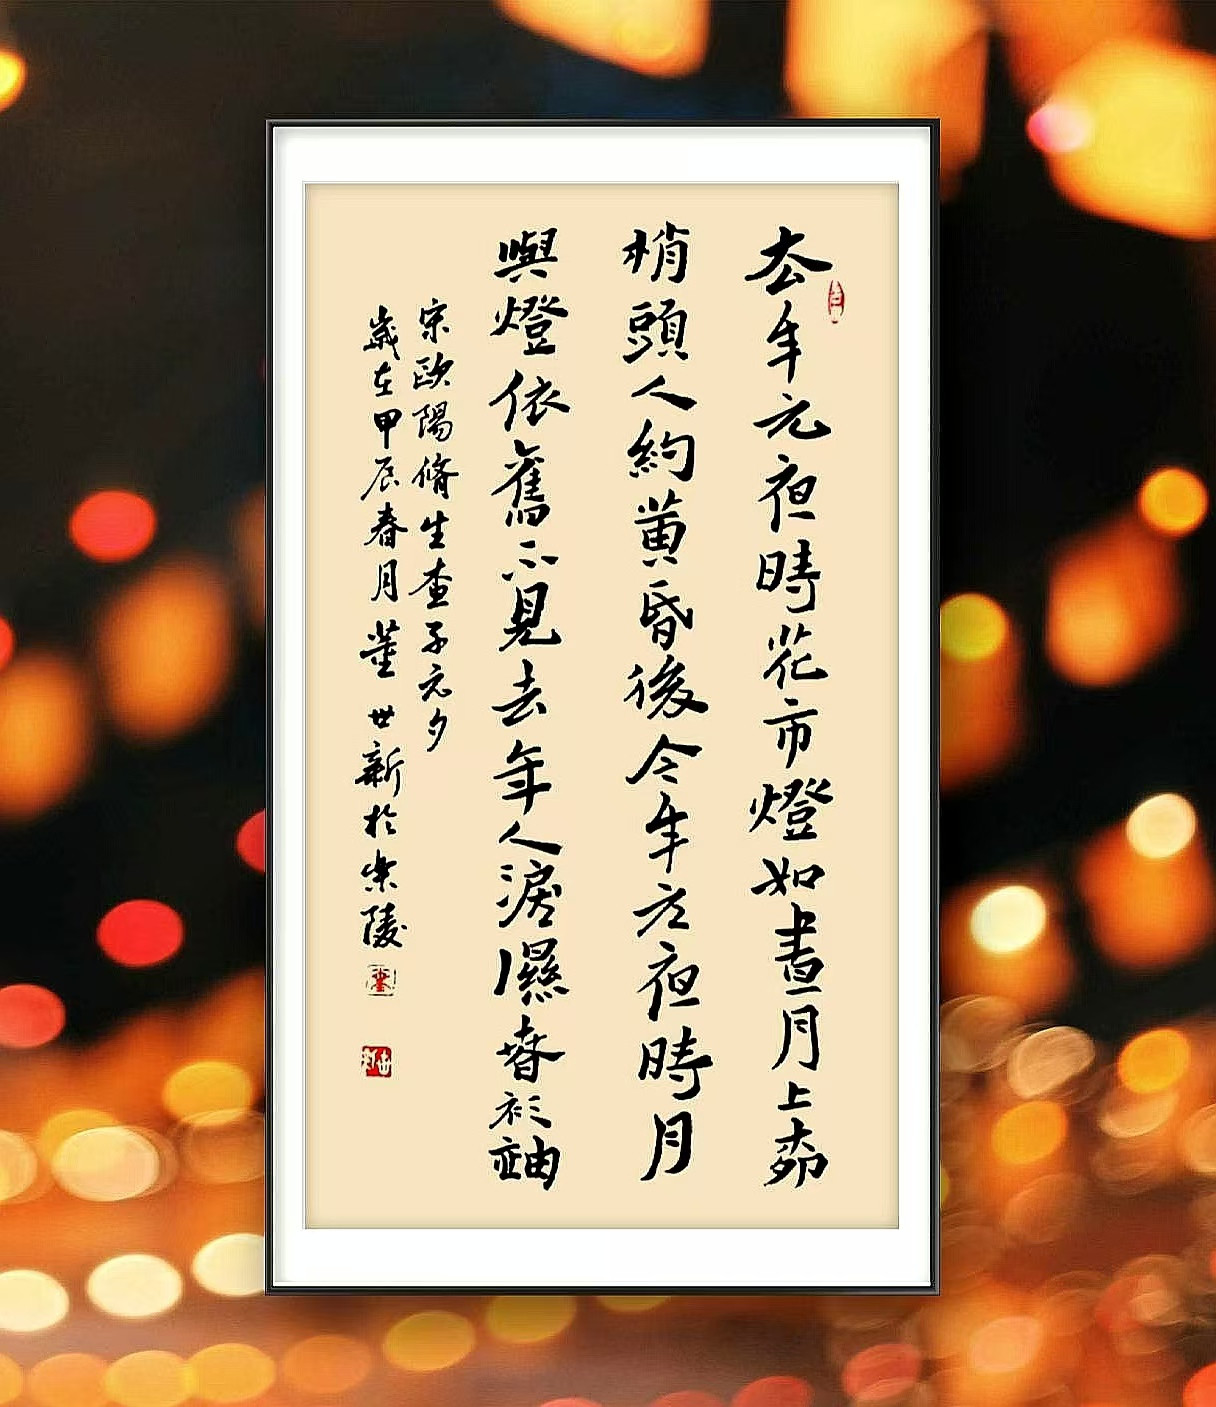 去年元夜時花市燈如晝月上柳
梢頭人約黃昏後今年元夜時月
與燈依舊不見去年人淚濕春衫袖
宋歐陽脩生查子元夕
歲在甲辰春月董世新於樂陵